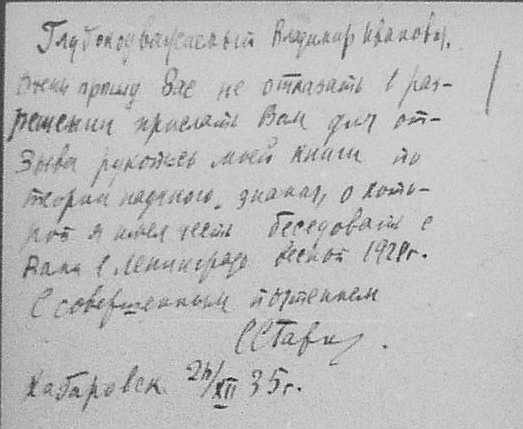 Глубокоуважаемый Владимир Иванович.
Очень прошу Вас не отказать в раз-
решении прислать Вам для от-
зыва рукопись моей книги по
теории научного знания, о кото-
рой я имел честь беседовать с
Вами в Ленинграде весной 1928г.
С совершенным почтением
Хабаровск 26/XII 35г.